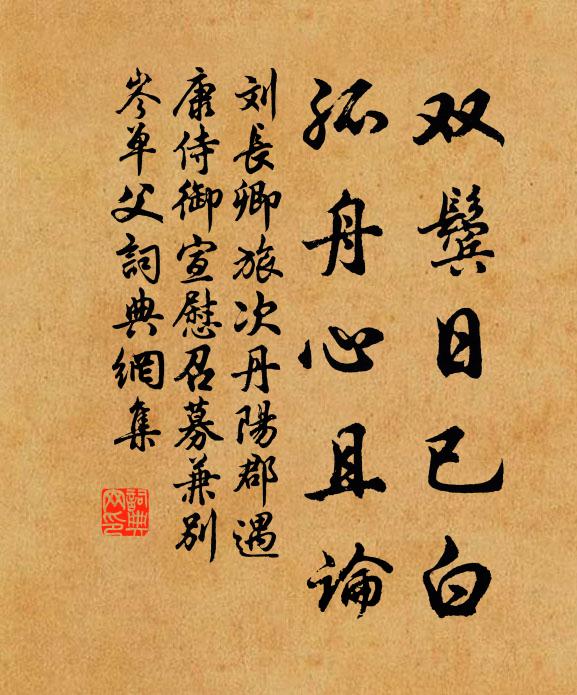 双鬓日已白
孤舟心且论
刘長卿旅次丹陽郡遇
康侍御宣慰召募兼别
岑单父詞典網集
詞典网印